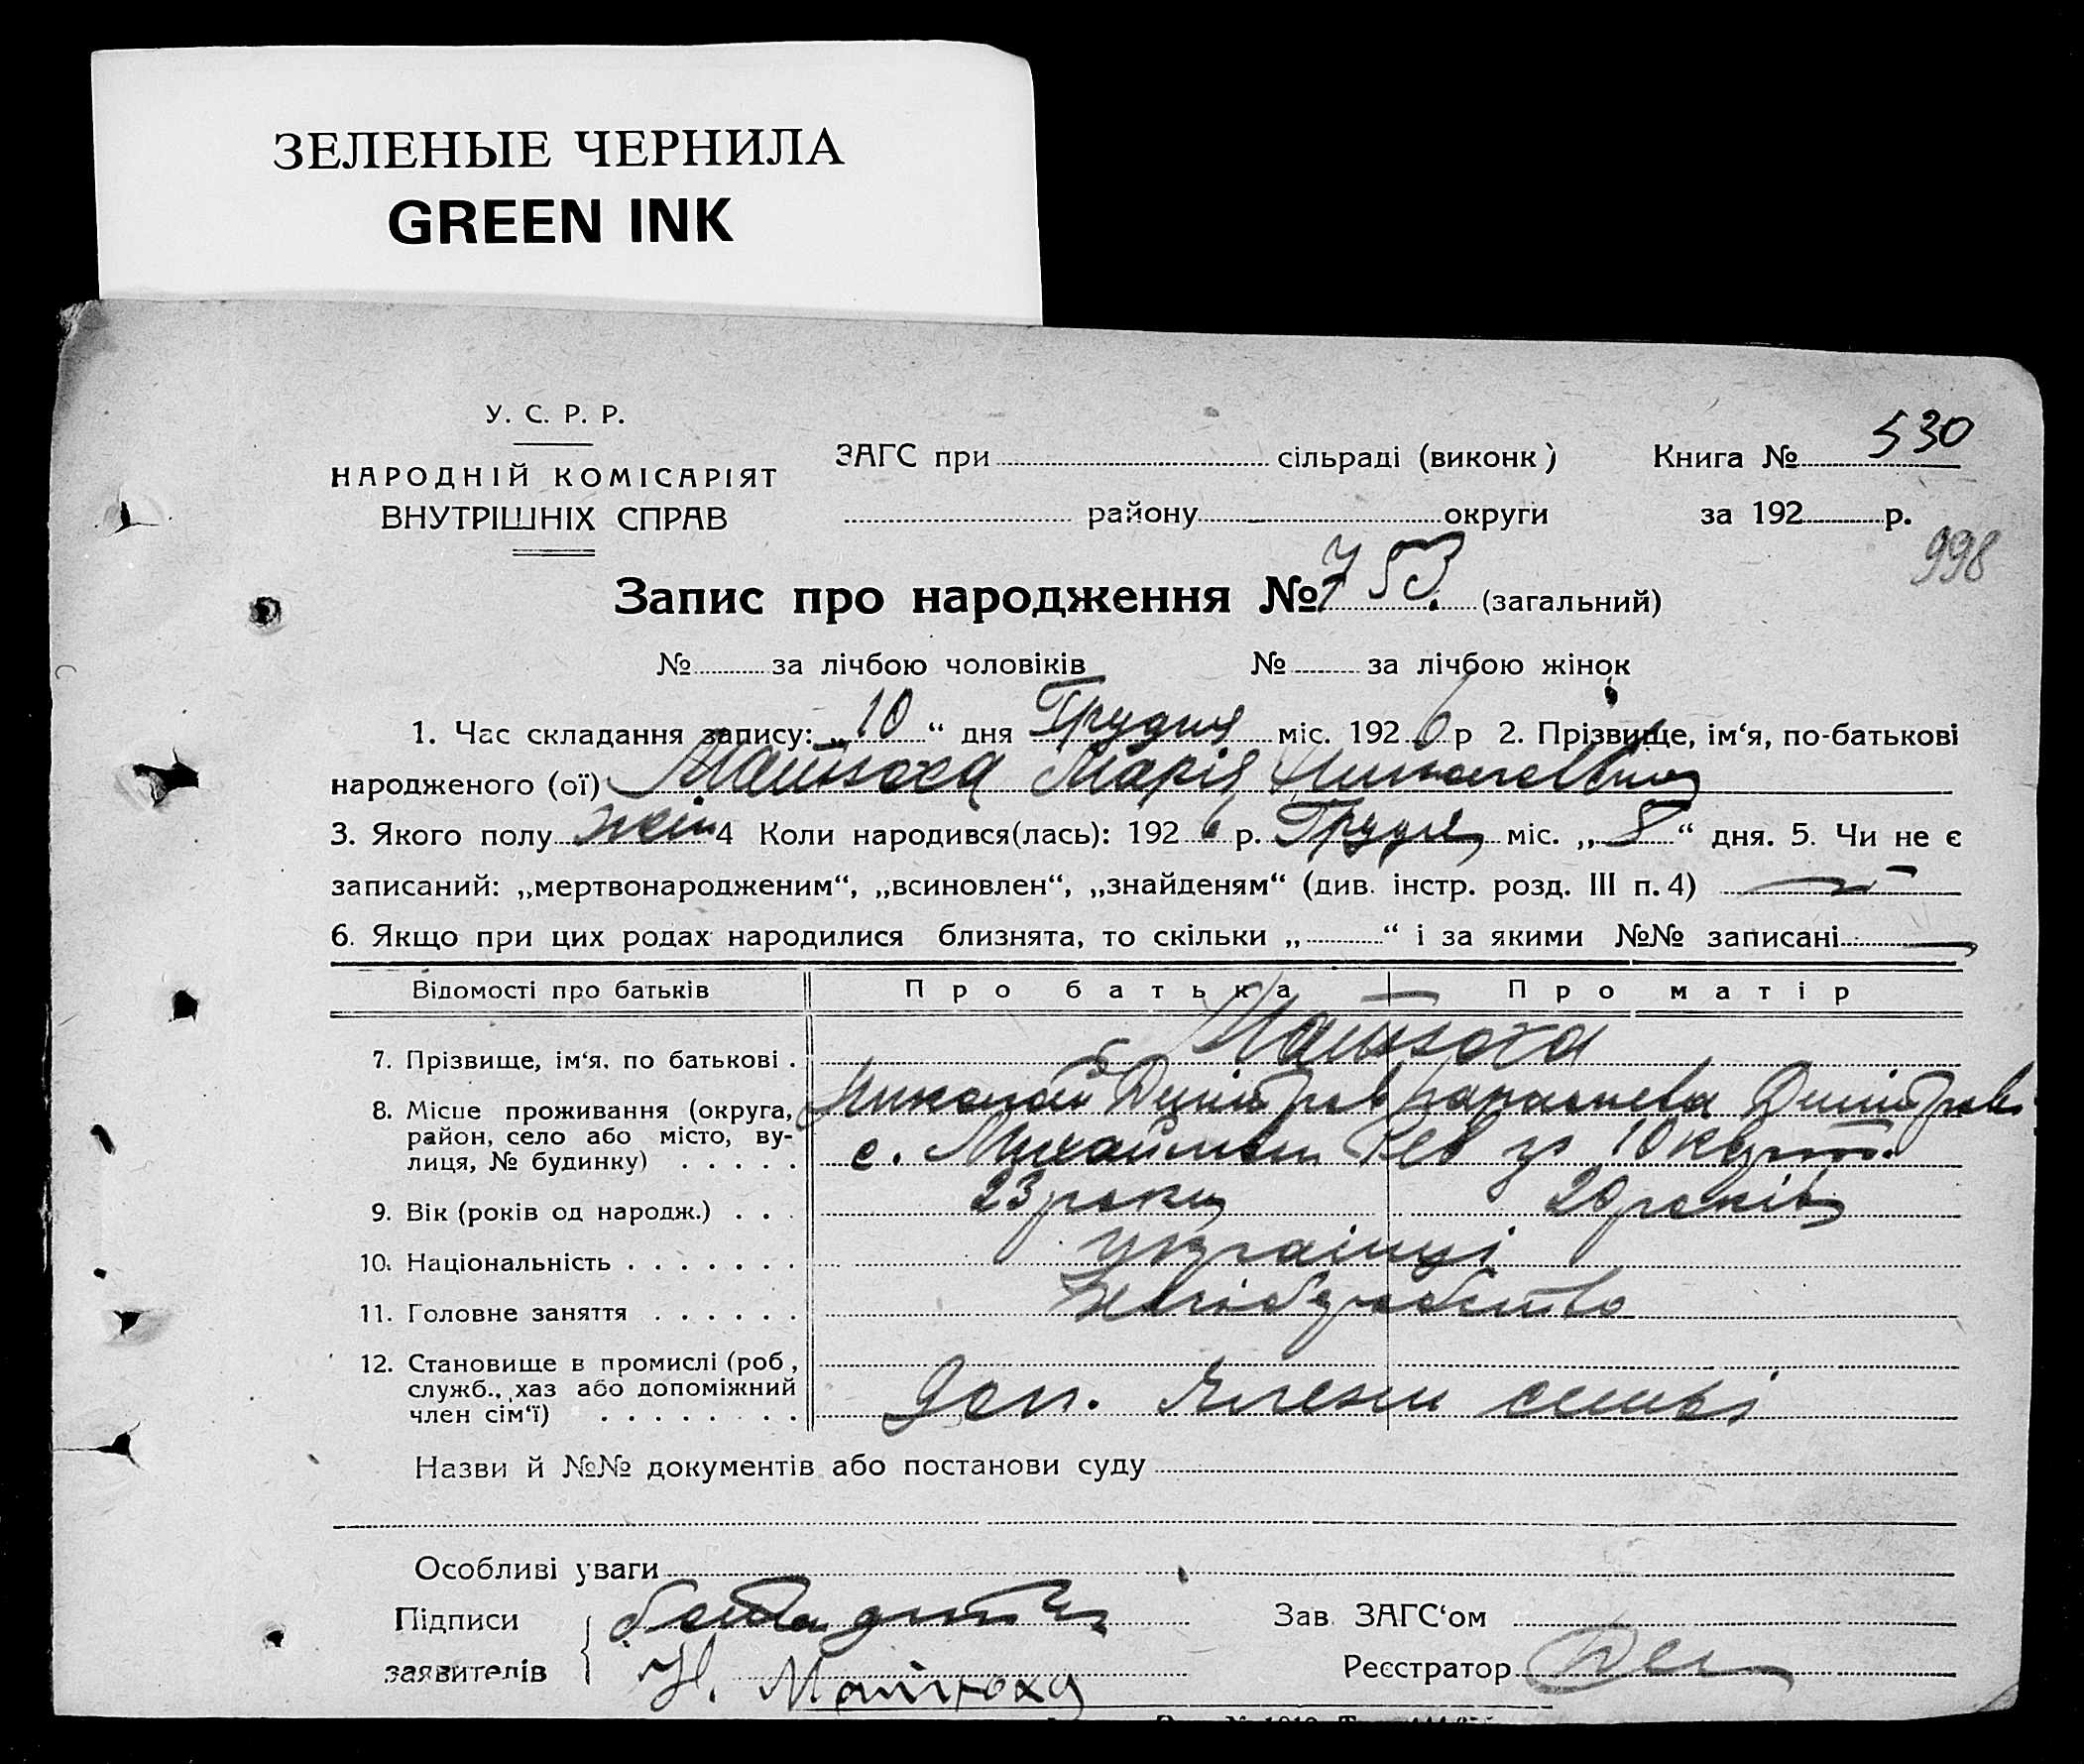 ЗЕЛЕНЫЕ ЧЕРНИЛА
GREEN INK
У. С. Р. Р.
НАРОДНІЙ КОМІСАРІЯТ
ВНУТРІШНІХ СПРАВ
ЗАГС при сільраді (виконк)
району округи
Книга № 530
за 192 р.
998
Запис про народження № 753. (загальний)
№ за лічбою чоловіків № за лічбою жінок
1. Час складання запису: „10“ дня Грудня міс. 1926 р 2. Прізвище, ім‘я, по-батькові
народженого (ої) Марія
3. Якого полу жін 4 Коли народився(лась): 1926 р. Грудня міс. „8“ дня. 5. Чи не є
записаний: „мертвонародженим“, „всиновлен“, „знайденям“ (див. інстр. розд. III п. 4)
6. Якщо при цих родах народилися близнята, то скільки „ “ і за якими №№ записані
Відомості про батьків Про батька Про матір
7. Прізвище, ім‘я, по батькові .
8. Місце проживання (округа, Николай Дмитров
район, село або місто, ву-
лиця, № будинку) . . . . . с.
9. Вік (років од народж.) . . . 23 роки 20 років
10. Національність . . . . . . . Українці
11. Головне заняття . . . . . . Хліборобство
12. Становище в промислі (роб,
служб., хаз або допоміжний
член сім‘ї) . . . . . . . . Доп. члени
Назви й №№ документів або постанови суду
Особливі уваги
Підписи
заявителів
Зав. ЗАГС‘ом
Реєстратор